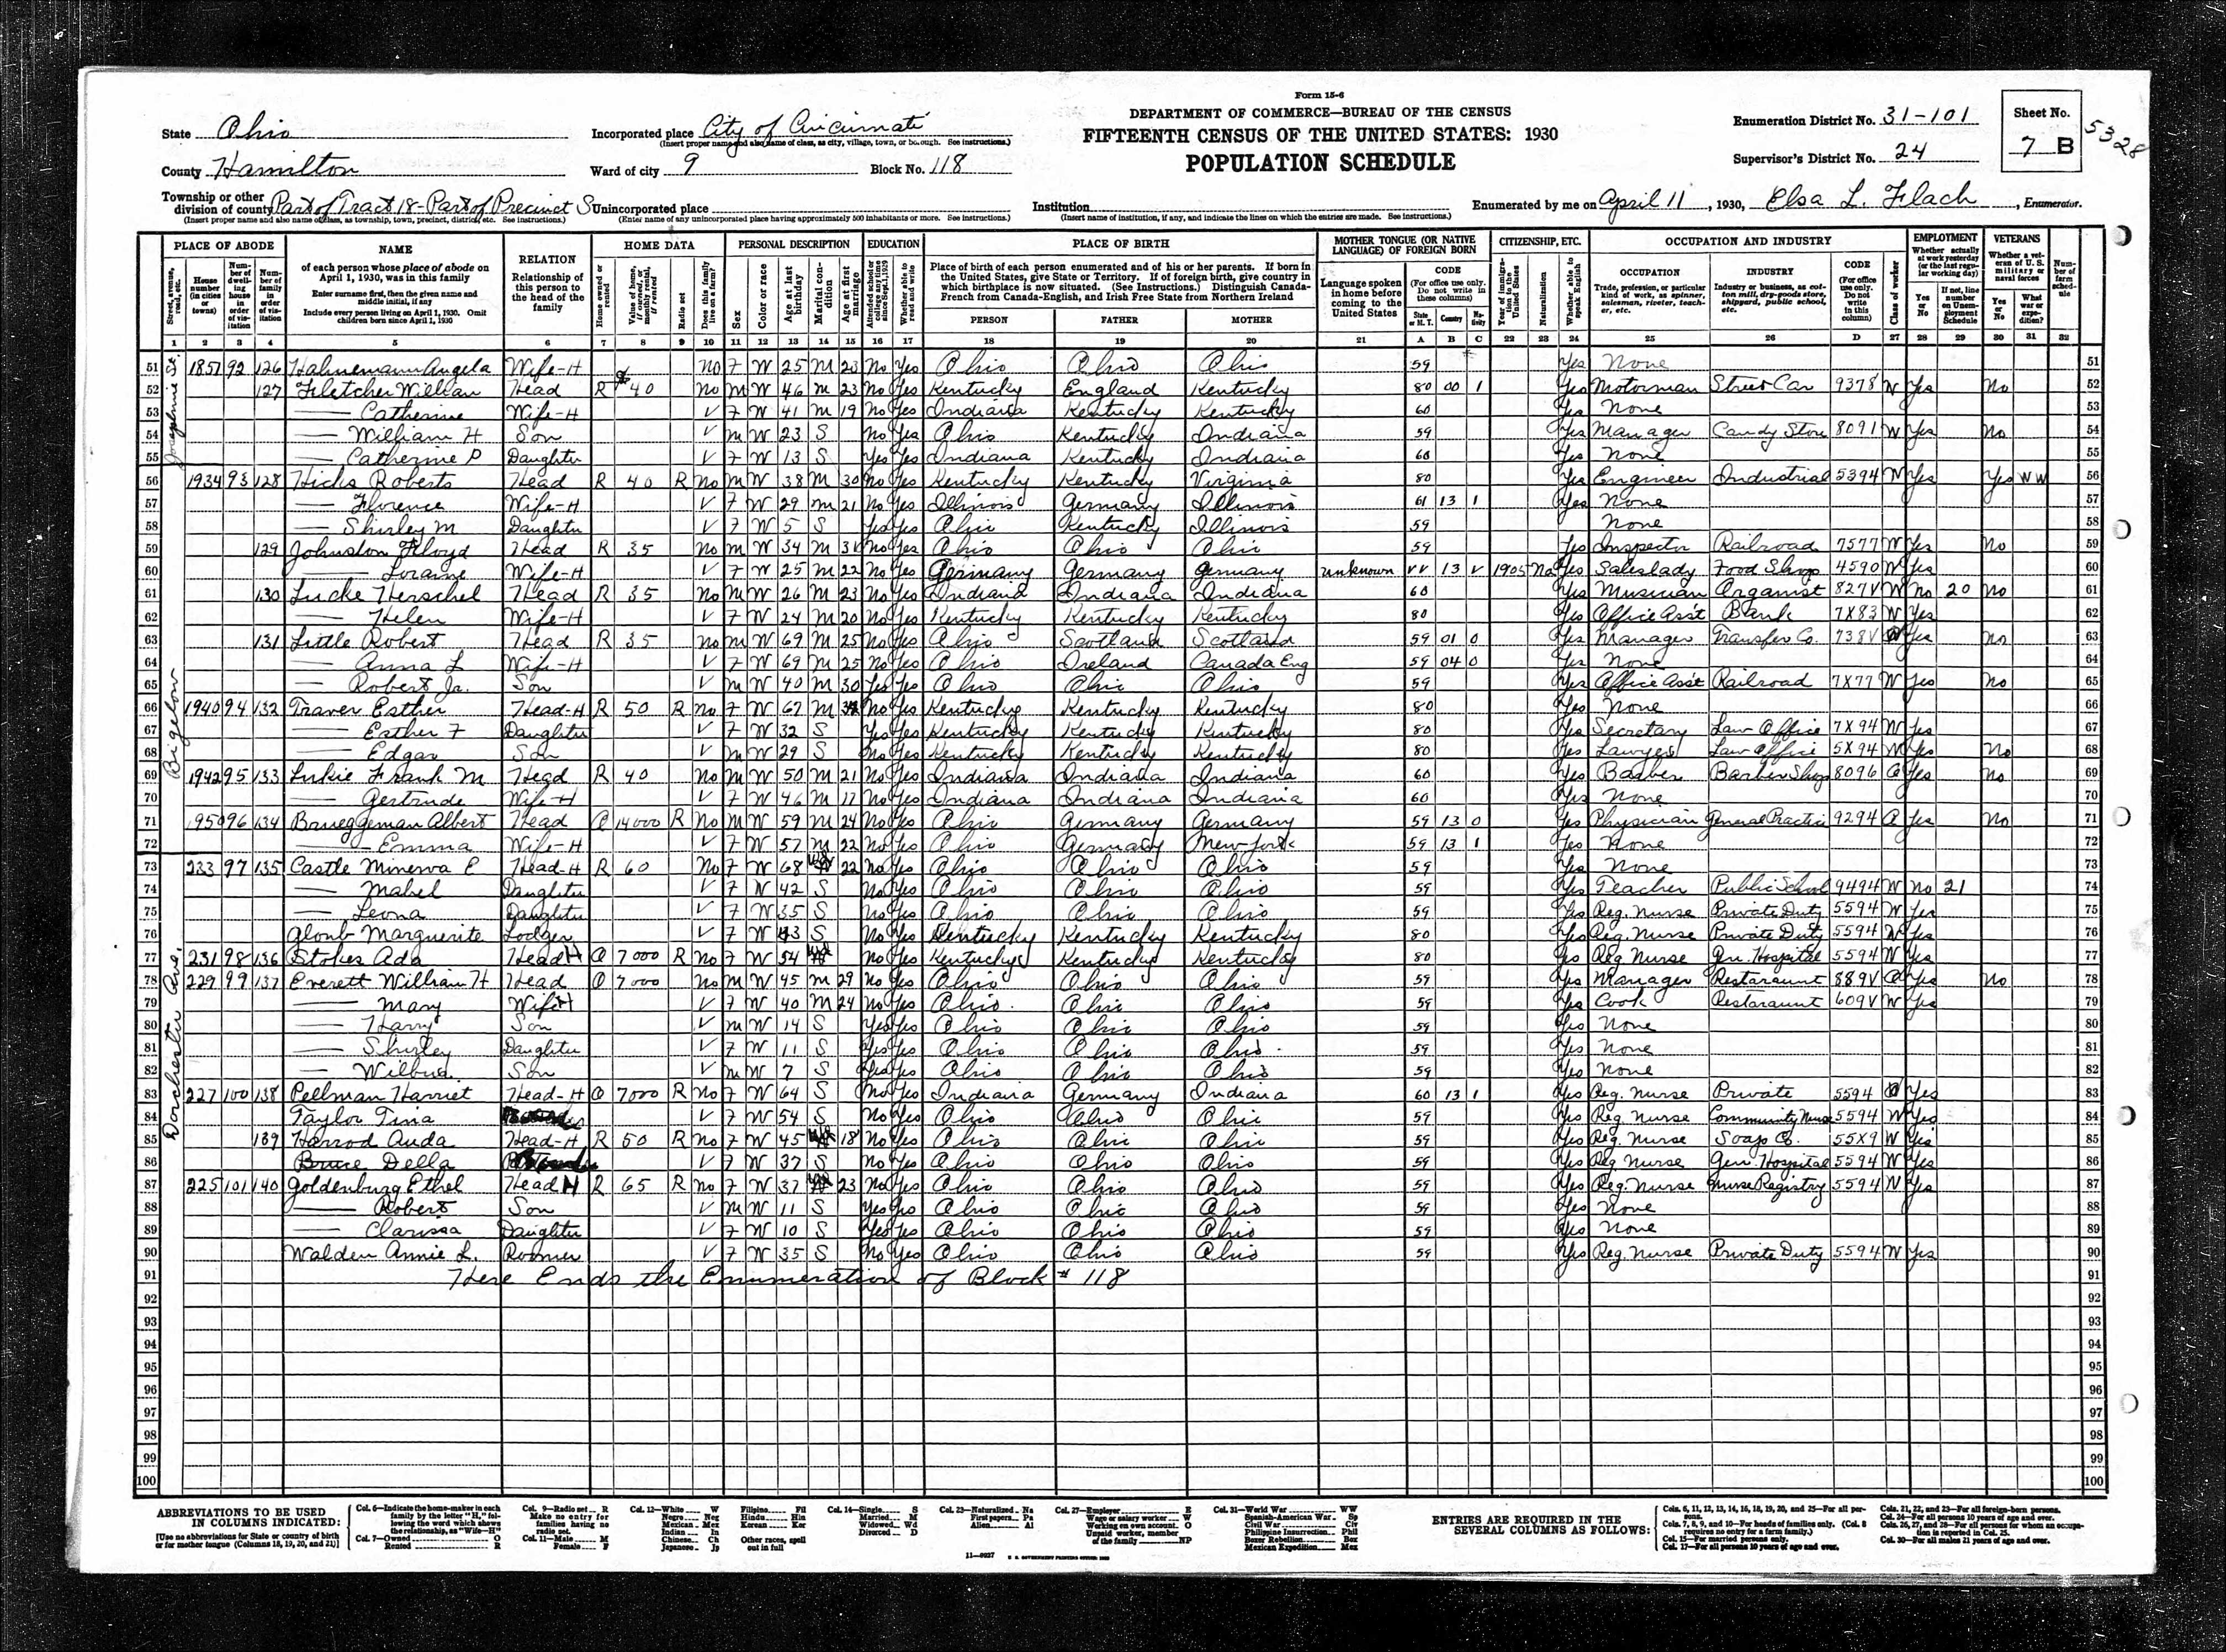 Form 15-6
DEPARTMENT OF COMMERCE—BUREAU OF THE CENSUS
FIFTEENTH CENSUS OF THE UNITED STATES: 1930
POPULATION SCHEDULE
State Ohio
County Hamilton
Township or other division of county Part of Tract 18 - Part of Precinct S
(Insert proper name and also name of class, as township, town, precinct, district, etc. See instructions.)
Incorporated place City of Cincinnati
(Insert proper name and also name of class, as city, village, town, or borough. See instructions.)
Ward of city 9 Block No. 118
Unincorporated place
(Enter name of any unincorporated place having approximately 500 inhabitants or more. See instructions.)
Institution
(Insert name of institution, if any, and indicate the lines on which the entries are made. See instructions.)
Enumeration District No. 31-101
Supervisor's District No. 24
Sheet No. 7 B
5328
Enumerated by me on April 11, 1930, Elsa L. Flach, Enumerator.
PLACE OF ABODE NAME RELATION HOME DATA PERSONAL DESCRIPTION EDUCATION PLACE OF BIRTH MOTHER TONGUE (OR NATIVE LANGUAGE) OF FOREIGN BORN CITIZENSHIP, ETC. OCCUPATION AND INDUSTRY EMPLOYMENT VETERANS
of each person whose place of abode on April 1, 1930, was in this family
Enter surname first, then the given name and middle initial, if any
Include every person living on April 1, 1930. Omit children born since April 1, 1930
Relationship of this person to the head of the family
Place of birth of each person enumerated and of his or her parents. If born in the United States, give State or Territory. If of foreign birth, give country in which birthplace is now situated. (See Instructions.) Distinguish Canada-French from Canada-English, and Irish Free State from Northern Ireland
PERSON FATHER MOTHER
1 2 3 4 5 6 7 8 9 10 11 12 13 14 15 16 17 18 19 20 21 A B C 22 23 24 25 26 D 27 28 29 30 31 32
Josephine St.
51 1851 92 126 Hahnemann Angela Wife-H No F W 25 M 23 No Yes Ohio Ohio Ohio 59 Yes None 51
52 127 Fletcher William Head R $40 No M W 46 M 23 No Yes Kentucky England Kentucky 80 00 1 Yes Motorman Street Car 9378 W Yes No 52
53 — Catherine Wife-H V F W 41 M 19 No Yes Indiana Kentucky Kentucky 60 Yes None 53
54 — William H Son V M W 23 S No Yes Ohio Kentucky Indiana 59 Yes Manager Candy Store 8091 W Yes No 54
55 — Catherine P Daughter V F W 13 S Yes Yes Indiana Kentucky Indiana 60 Yes None 55
Bigelow
56 1934 93 128 Hicks Roberts Head R 40 R No M W 38 M 30 No Yes Kentucky Kentucky Virginia 80 Yes Engineer Industrial 5394 W Yes Yes WW 56
57 — Florence Wife-H V F W 29 M 21 No Yes Illinois Germany Illinois 61 13 1 Yes None 57
58 — Shirley M Daughter V F W 5 S Yes Yes Ohio Kentucky Illinois 59 None 58
59 129 Johnston Floyd Head R 35 No M W 34 M 31 No Yes Ohio Ohio Ohio 59 Yes Inspector Railroad 7577 W Yes No 59
60 — Loraine Wife-H V F W 25 M 22 No Yes Germany Germany Germany unknown VV 13 V 1905 Na Yes Saleslady Food Shop 4590 W Yes 60
61 130 Lucke Herschel Head R 35 No M W 26 M 23 No Yes Indiana Indiana Indiana 60 Yes Musician Organist 827V W No 20 No 61
62 — Helen Wife-H V F W 24 M 20 No Yes Kentucky Kentucky Kentucky 80 Yes Office Ass't Bank 7X83 W Yes 62
63 131 Little Robert Head R 35 No M W 69 M 25 No Yes Ohio Scotland Scotland 59 01 0 Yes Manager Transfer Co. 738V W Yes No 63
64 — Anna L Wife-H V F W 69 M 25 No Yes Ohio Ireland Canada Eng 59 04 0 Yes None 64
65 — Robert Jr. Son V M W 40 M 30 Yes Yes Ohio Ohio Ohio 59 Yes Office Ass't Railroad 7X77 W Yes No 65
66 1940 94 132 Traver Esther Head-H R 50 R No F W 67 M No Yes Kentucky Kentucky Kentucky 80 Yes None 66
67 — Esther F Daughter V F W 32 S Yes Yes Kentucky Kentucky Kentucky 80 Yes Secretary Law Office 7X94 W Yes 67
68 — Edgar Son V M W 29 S No Yes Kentucky Kentucky Kentucky 80 Yes Lawyer Law Office 5X94 W Yes No 68
69 1942 95 133 Lukie Frank M Head R 40 No M W 50 M 21 No Yes Indiana Indiana Indiana 60 Yes Barber Barber Shop 8096 O Yes No 69
70 — Gertrude Wife-H V F W 46 M 17 No Yes Indiana Indiana Indiana 60 Yes None 70
71 1950 96 134 Brueggeman Albert Head O 14000 R No M W 59 M 24 No Yes Ohio Germany Germany 59 13 0 Yes Physician General Practice 9294 O Yes No 71
72 — Emma Wife-H V F W 57 M 22 No Yes Ohio Germany New York 59 13 1 Yes None 72
Dorchester Ave.
73 233 97 135 Castle Minerva E Head-H R 60 No F W 68 Wd 22 No Yes Ohio Ohio Ohio 59 Yes None 73
74 — Mabel Daughter V F W 42 S No Yes Ohio Ohio Ohio 59 Yes Teacher Public School 9494 W No 21 74
75 — Leona Daughter V F W 35 S No Yes Ohio Ohio Ohio 59 Yes Reg. Nurse Private Duty 5594 W Yes 75
76 Marguerite Lodger V F W 43 S No Yes Kentucky Kentucky Kentucky 80 Yes Reg. Nurse Private Duty 5594 W Yes 76
77 231 98 136 Stokes Ada Head H O 7000 R No F W 54 No Yes Kentucky Kentucky Kentucky 80 Yes Reg Nurse Gen. Hospital 5594 W Yes 77
78 229 99 137 Everett William H Head O 7000 No M W 45 M 29 No Yes Ohio Ohio Ohio 59 Yes Manager Restaraunt 889V O Yes No 78
79 — Mary Wife H V F W 40 M 24 No Yes Ohio Ohio Ohio 59 Yes Cook Restaraunt 609V W Yes 79
80 — Harry Son V M W 14 S Yes Yes Ohio Ohio Ohio 59 Yes None 80
81 — Shirley Daughter V F W 11 S Yes Yes Ohio Ohio Ohio 59 Yes None 81
82 — Wilbur Son V M W 7 S Yes Yes Ohio Ohio Ohio 59 Yes None 82
83 227 100 138 Pellman Harriet Head-H O 7000 R No F W 64 S No Yes Indiana Germany Indiana 60 13 1 Yes Reg. Nurse Private 5594 O Yes 83
84 Taylor Tina V F W 54 S No Yes Ohio Ohio Ohio 59 Yes Reg Nurse Community Nurse 5594 W Yes 84
85 139 Harrod Auda Head-H R 50 R No F W 45 18 No Yes Ohio Ohio Ohio 59 Yes Reg. Nurse Soap Co. 55X9 W Yes 85
86 Bruce Della V F W 37 S No Yes Ohio Ohio Ohio 59 Yes Reg. Nurse Gen. Hospital 5594 W Yes 86
87 225 101 140 Goldenburg Ethel Head H R 65 R No F W 37 23 No Yes Ohio Ohio Ohio 59 Yes Reg. Nurse Nurse Registry 5594 W Yes 87
88 — Robert Son V M W 11 S Yes Yes Ohio Ohio Ohio 59 Yes None 88
89 — Clarissa Daughter V F W 10 S Yes Yes Ohio Ohio Ohio 59 Yes None 89
90 Walden Annie L. Roomer V F W 35 S No Yes Ohio Ohio Ohio 59 Yes Reg. Nurse Private Duty 5594 W Yes 90
91 Here Ends the Enumeration of Block # 118 91
92 92
93 93
94 94
95 95
96 96
97 97
98 98
99 99
100 100
ABBREVIATIONS TO BE USED IN COLUMNS INDICATED:
[Use no abbreviations for State or country of birth or for mother tongue (Columns 18, 19, 20, and 21)]
ENTRIES ARE REQUIRED IN THE SEVERAL COLUMNS AS FOLLOWS: